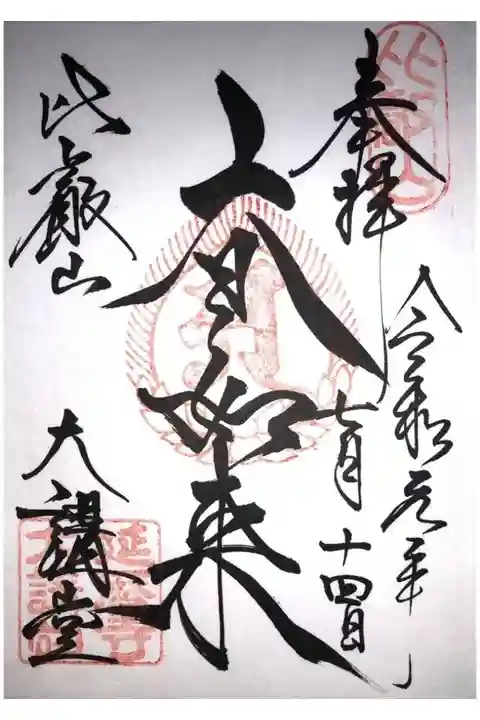 比叡山
奉拝
令和元年
七月十四日
大日如来
比叡山
大講堂
延暦寺